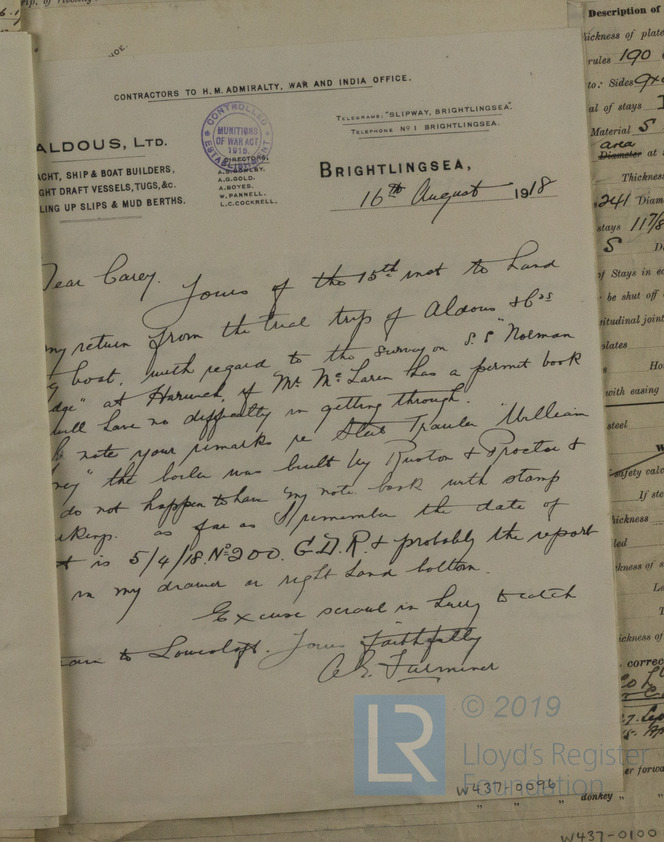 CONTRACTORS TO H.M. ADMIRALTY, WAR AND INDIA OFFICE.
CONTROLLED ESTABLISHMENT
MUNITIONS
OF WAR ACT
1915.
TELEGRAMS: "SLIPWAY, BRIGHTLINGSEA".
TELEPHONE Nº 1 BRIGHTLINGSEA.
ALDOUS, LTD.
ACHT, SHIP & BOAT BUILDERS,
GHT DRAFT VESSELS, TUGS, &c.
LING UP SLIPS & MUD BERTHS.
DIRECTORS,
A.G.GOLD.
A.BOYES.
W.PANNELL.
L.C.COCKRELL.
BRIGHTLINGSEA,
16th August 1918
ear Carey. Yours of the 15th inst to hand
my return from the trial trip of Aldous & Cos
boat, with regard to the survey on S.S "Norman
dge" at Harwich, if Mr Mc Laren has a permit book
will have no difficulty in getting through.
note your remarks re Stm Trawler "William
ney" the boiler was built by Ruston & Proctor &
do not happen to have my note book with stamp
rkings. as far as I remember the date of
t is 5/4/18. Nº 200. G.D.R. & probably the report
in my drawer on right hand bottom.
Excuse scrawl in hurry to catch
to Lowestoft. Yours faithfully
© 2019
LR
Lloyd's Register
Foundation
W437-0096
Description of
hickness of plate
rules 190
to: Sides
al of stays
Material S
area
Diameter at
Thickness
241 Diam
stays 117/8
S
of Stays in ea
be shut off
itudinal joint
plates
Ho
with easing
steel
safety valv
If ste
hickness
led
ickness of
correc
er forwa
donkey " "
W437-0100